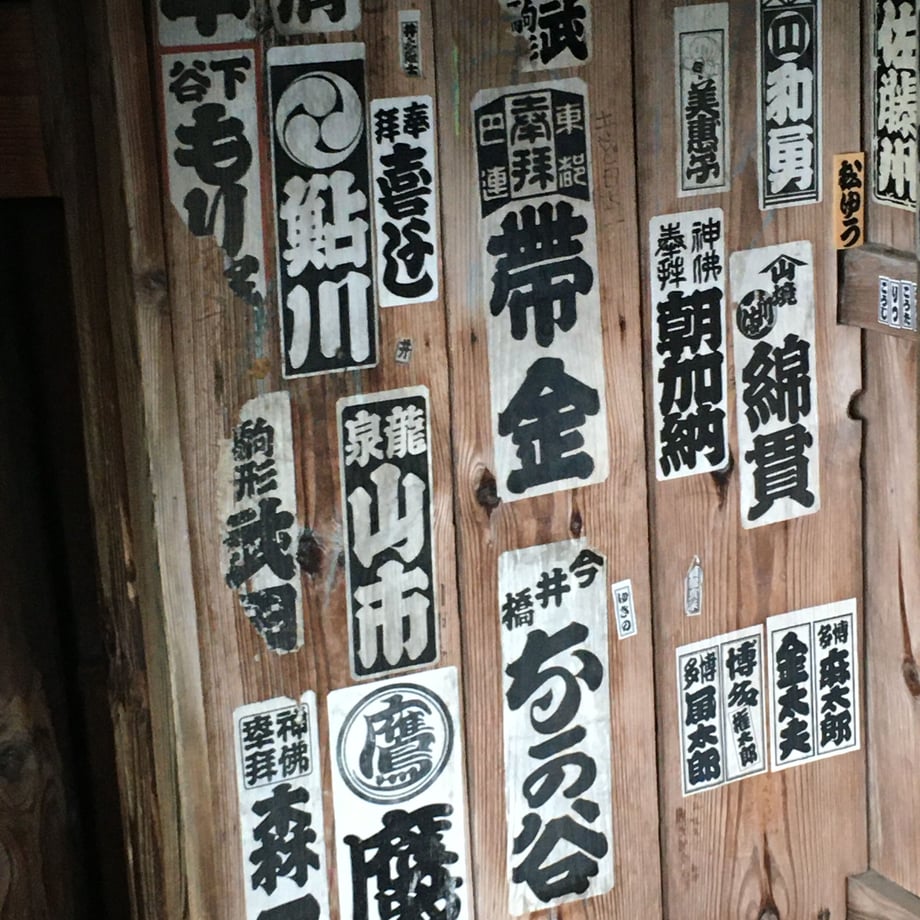 下谷
もり
鮎川
奉拝
喜よし
東都
奉拝
巴連
帯金
美恵子
和勇
佐藤
松ゆう
神佛
奉拝
朝加納
山焼
綿貫
駒形
武田
龍泉
山市
今井橋
なの谷
ゆきの
博多
麻太郎
金太夫
博多
権太郎
博多
扇太郎
神佛
奉拝
森
鷹
鷹
井